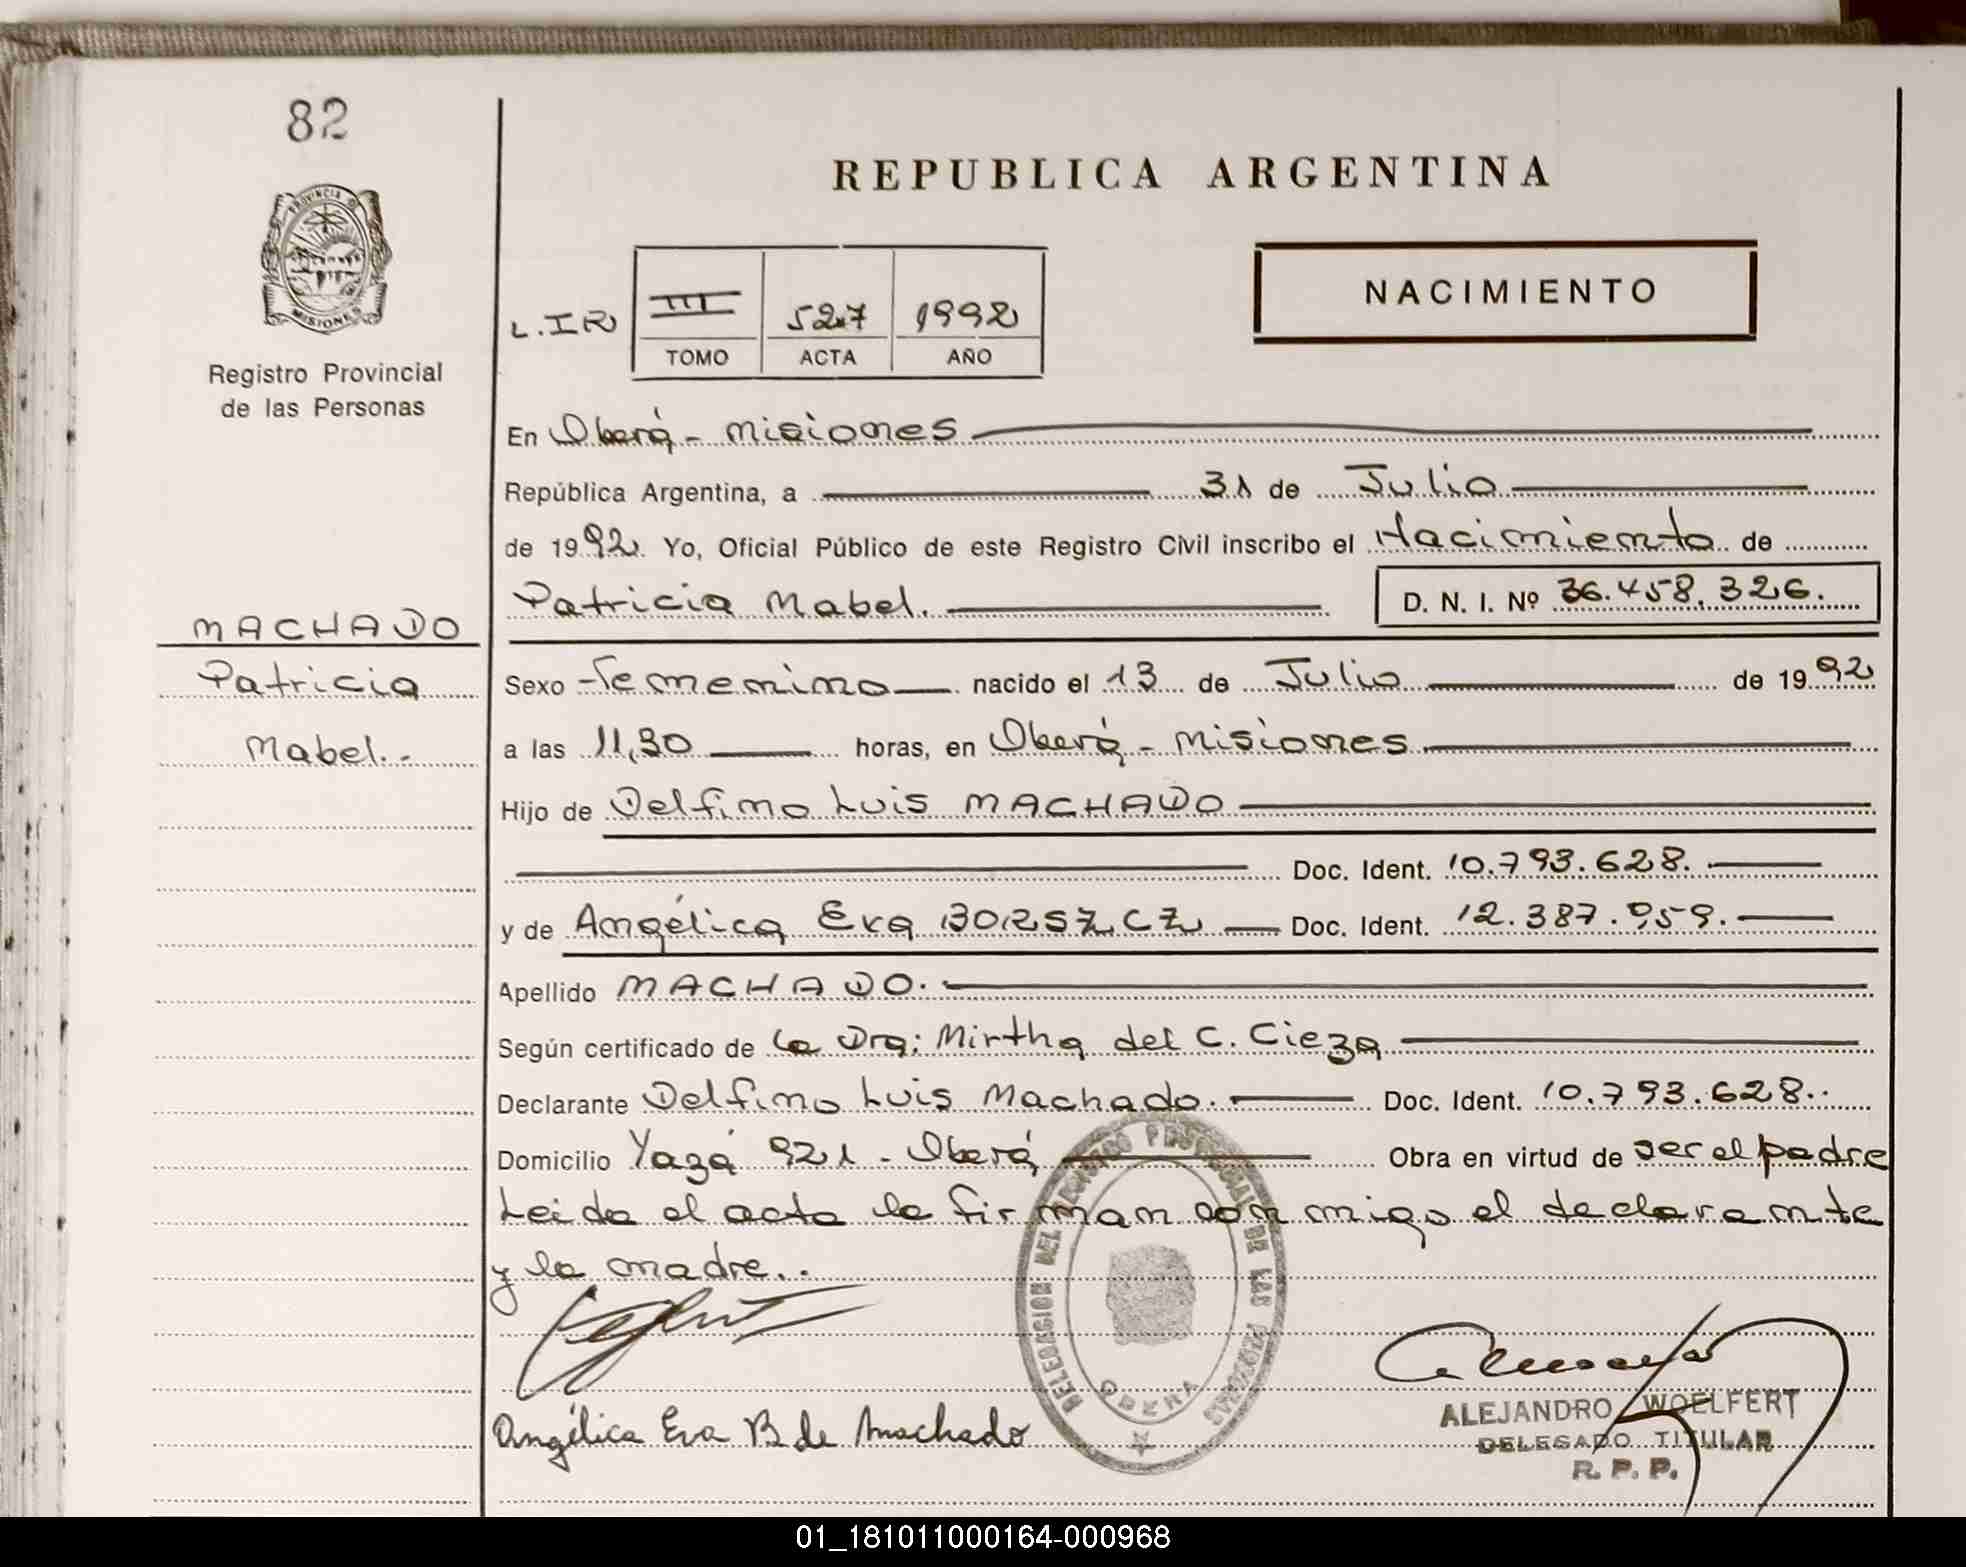 82
REPUBLICA ARGENTINA
PROVINCIA DE
MISIONES
Registro Provincial
de las Personas
NACIMIENTO
L.IR III 527 1992
TOMO ACTA AÑO
En Oberá - Misiones
República Argentina, a 31 de Julio
de 1992. Yo, Oficial Público de este Registro Civil inscribo el Nacimiento de
Patricia Mabel. D. N. I. Nº 36.458.326.
MACHADO
Patricia
Mabel.-
Sexo Femenino nacido el 13 de Julio de 1992
a las 11,30 horas, en Oberá - Misiones
Hijo de Delfino Luis MACHADO
Doc. Ident. 10.793.628.
y de Angélica Eva BORSZCZ Doc. Ident. 12.387.959.
Apellido MACHADO.
Según certificado de la Dra: Mirtha del C. Cieza
Declarante Delfino Luis Machado. Doc. Ident. 10.793.628..
Domicilio Yazá 921 - Oberá Obra en virtud de ser el padre
Leida el acta la firman conmigo el declarante
y la madre..
DELEGACION DEL REGISTRO PROVINCIAL DE LAS PERSONAS
OBERA
Angélica Eva B de Machado
ALEJANDRO WOELFERT
DELEGADO TITULAR
R. P. P.
01_181011000164-000968